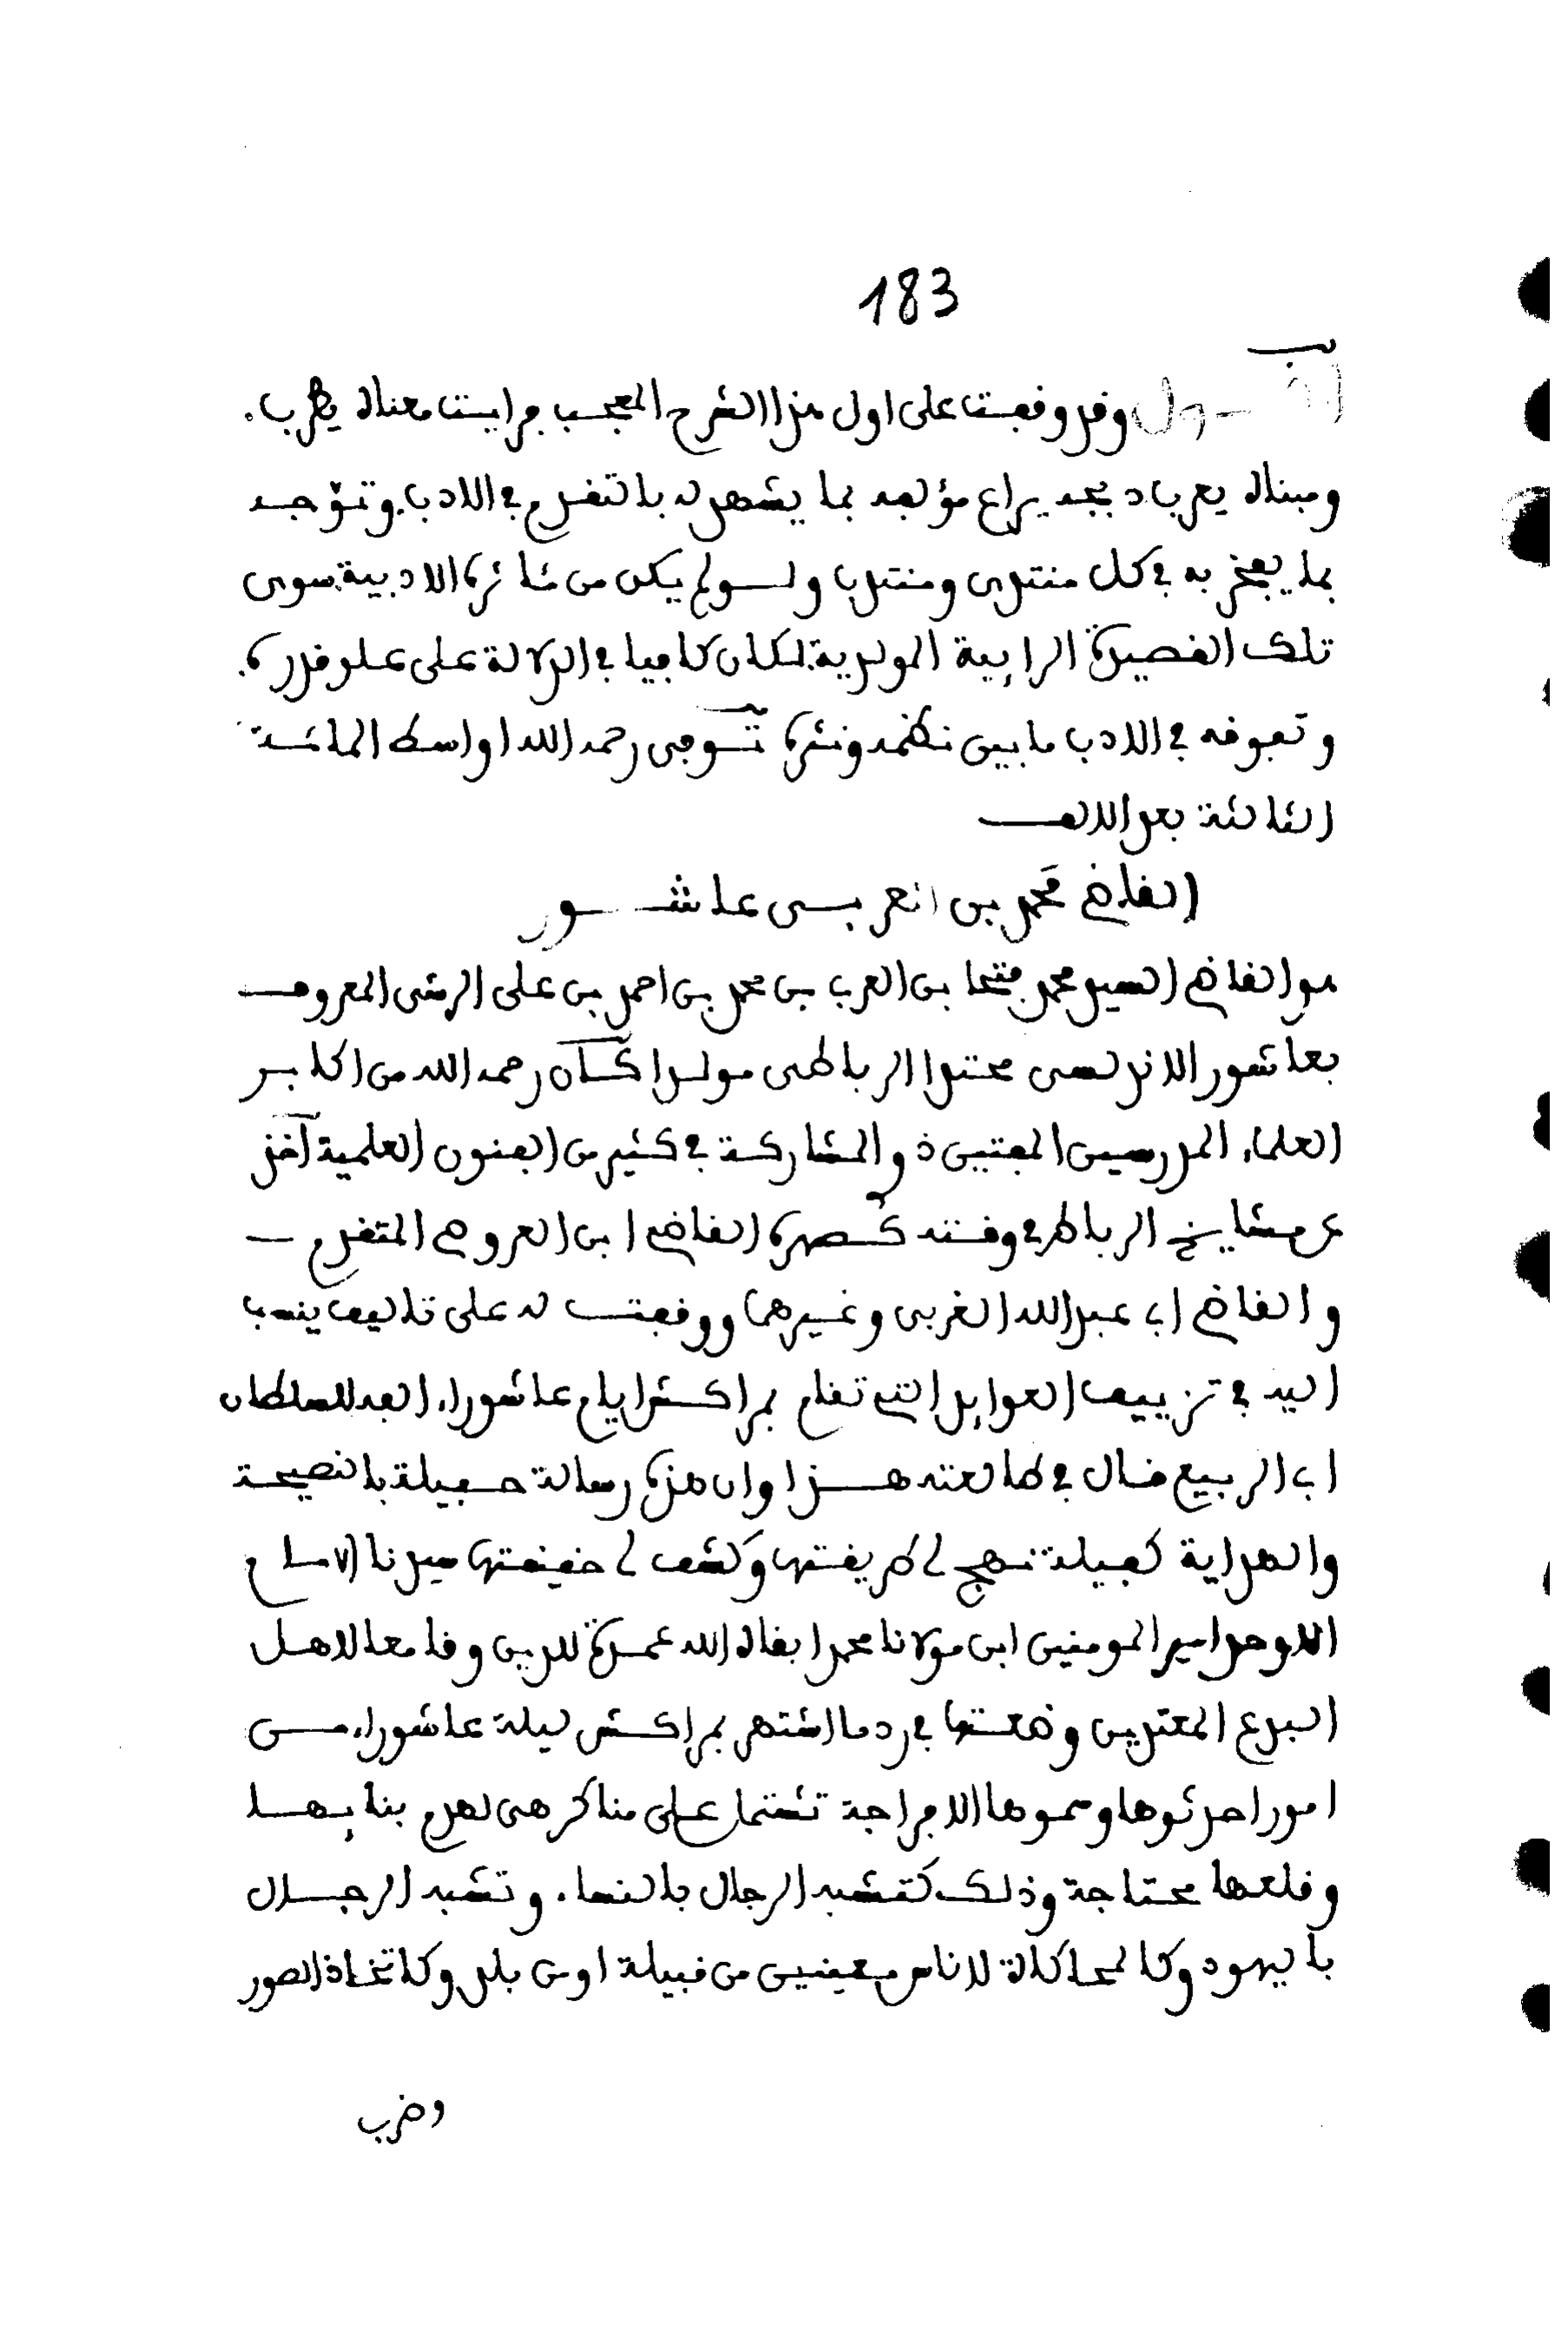 183
وقد وقفت على اول هذا الشرح المعجب فرايت معناه يطرب.
ومبناه يعرب اد بجد يراع مؤلفه بما يشهد له بالتقدم في الادب. وتوجه
بما يفخر به في كل منتدى ومنتدب ولو لم يكن من مئاثره الادبية سوى
تلك القصيدة الرايية المولدية. لكان كافيا في الدلالة على علو قدره.
وتفوقه في الادب ما بين نظمه ونثره توفى رحمه الله اواسط المائة
الثالثة بعد الالف
القاضي محمد بن العربى عاشور
هو القاضي السيد محمد فتحا بن العربي بن محمد بن احمد بن على الرشى المعروف
بعاشور الاندلسى محتدا الرباطى مولدا كان رحمه الله من اكابر
العلماء المدرسين المفتين ذو المشاركة في كثير من الفنون العلمية أخذ
عن مشايخ الرباط في وقته كصهره القاضي ابن العروصي المتقدم
والقاضي ابي عبد الله الغربى وغيرهما ووقفت له على تاليف ينسب
اليه في تزييف العوايد التي تقام بمراكش ايام عاشوراء الفه للسلطان
ابي الربيع قال في طالعته هذا وان هذه رسالة حفيلة بالنصيحة
والهداية كفيلة نهج لي طريقتها وكشف لي حقيقتها سيدنا الامام
الاوحد امير المومنين ابن مولانا محمد ابقاه الله عمدة للدين وقامعا لاهل
البدع المعتدين وضعتها في رد ما اشتهر بمراكش ليلة عاشوراء من
امور احدثوها وسموها الافراجة تشتمل على مناكر هى لهدم بنايها
وقلعها محتاجة وذلك كتشبه الرجال بالنساء. وتشبه الرجال
باليهود وكالمحاكاة لاناس معينين من قبيلة اومن بلد وكاتخاذ الصور
وضرب